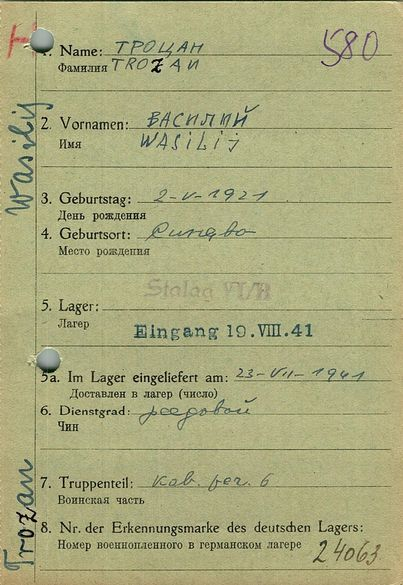 H
580
1. Name: ТРОЦАН
Фамилия TROZAN
2. Vornamen: ВАСИЛИЙ
Имя WASILIJ
3. Geburtstag: 2-V-1921
День рождения
4. Geburtsort:
Место рождения
Stalag VI/B
5. Lager:
Лагер
Eingang 19. VIII. 41
5a. Im Lager eingeliefert am: 23-VII-1941
Доставлен в лагер (число)
6. Dienstgrad: рядовой
Чин
7. Truppenteil: 6
Воинская часть
8. Nr. der Erkennungsmarke des deutschen Lagers:
Номер военнопленного в германском лагере 24063
Trozan Wasilij